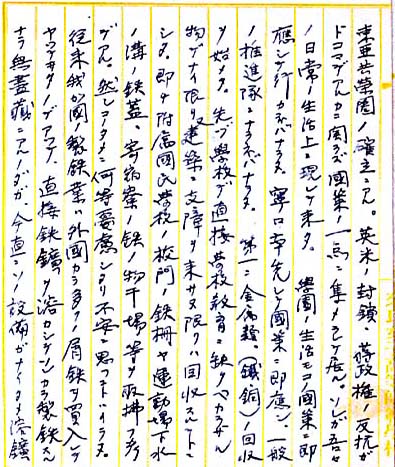 東亜共栄圏ノ確立ニアル。英米ノ封鎖、蒋政権ノ反抗ガ
ドコマデアルカニ関ラズ國策ノ一点ニ集メラレテ居ル。ソレガ吾々
ノ日常ノ生活上ニ現レテ来タ。 學園ノ生活モコノ國策ニ即
應シテ行カネバナラヌ。寧ロ率先シテ國策ニ即應シ、一般
ノ推進隊トナラネバナラヌ。 第一ニ金属類(鐵銅)ノ回収
ヲ始メタ。先ヅ學校デ直接學校教育ニ缺クベカラザル
物デナイ限リ建築ニ支障ヲ来サヌ限リハ回収スルコトニ
シタ。即チ附属國民學校ノ校門ノ鉄柵ヤ運動場下水
ノ溝ノ鉄蓋、寄宿寮ノ鉄ノ物干場等ヲ取拂フ
デアル。然シコノタメニ何等憂慮シタリ不安ニ思フコトハイラヌ。
従来我ガ國ノ製鉄業ハ外國カラ多クノ屑鉄ヲ買入レテ
ヤツテヰタノデアツテ、直接鉄鑛ヲ溶カシテソレカラ製鉄スル
ナラ無盡蔵ニアルノダガ、今直ニソノ設備ガナイタメ溶鑛